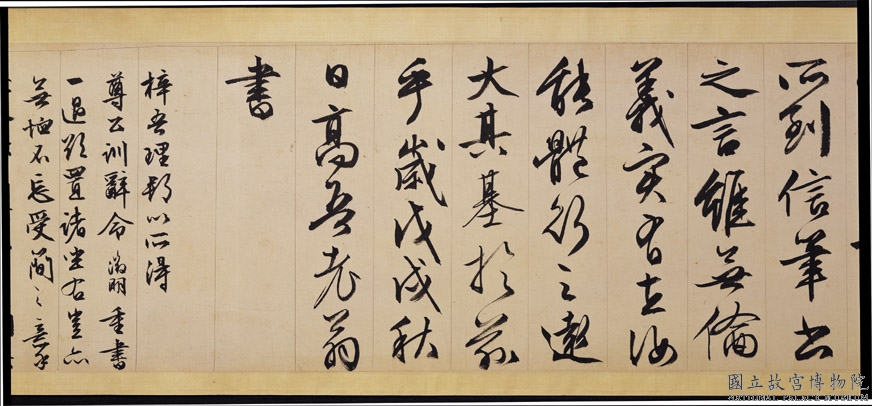 所到信筆書
之言雖無倫
義實有在汝
能體行之遠
大其基於茲
乎歲戊戌秋
日高吾老翁
書
梓吾理以所得
尊公訓辭命徵明重書
一過欲置諸坐右豈亦
無不忘受簡之意
國立故宮博物院
NATIONAL PALACE MUSEUM